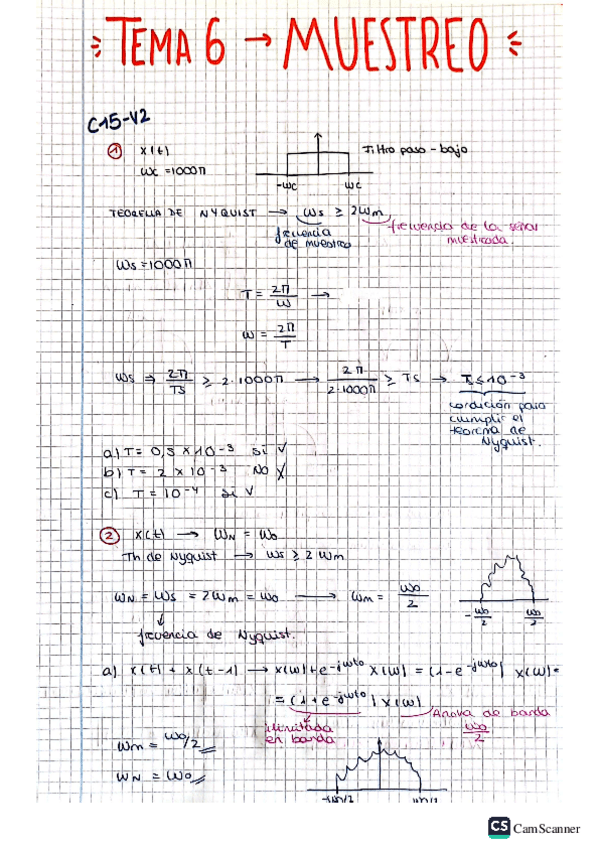 TEMA 6 → MUESTREO
C15-V2
① x(t)
ωc = 1000π
Filtro paso-bajo
-ωc ωc
TEOREMA DE NYQUIST → ωs ≥ 2ωm
frecuencia de muestreo
frecuencia de la señal muestreada.
ωs = 1000π
T = 2π/ω →
ω = 2π/T
ωs ⇒ 2π/Ts ≥ 2·1000π → 2π/2·1000π ≥ Ts → Ts ≤ 10^-3
condición para cumplir el teorema de Nyquist.
a) T = 0,5 × 10^-3 si ✓
b) T = 2 × 10^-3 No X
c) T = 10^-4 si ✓
② x(t) → ωN = ωo
Th de Nyquist → ωs ≥ 2ωm
ωN = ωs = 2ωm = ωo → ωm = ωo/2
-ωo/2 ωo/2
frecuencia de Nyquist.
a) x(t) + x(t-1) → x(ω) + e^-jωto x(ω) = (1-e^-jωto) x(ω) =
= (1+e^-jωto) x(ω)
ilimitada en banda
Anova de banda ωo/2
ωm = ωo/2
ωN = ωo
-ωo/2 ωo/2
CS CamScanner